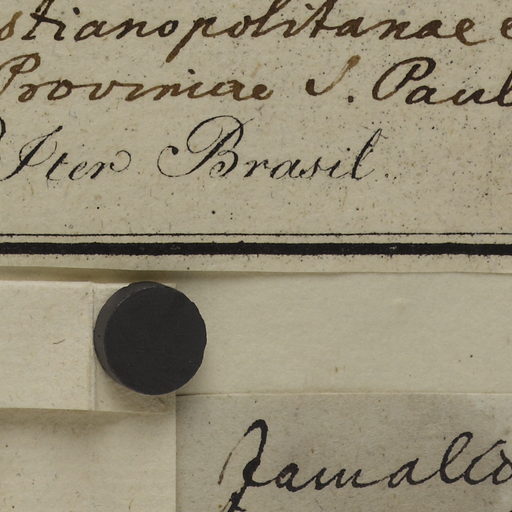 stianopolitanae e
Provinciae S. Paul
Iter Brasil.